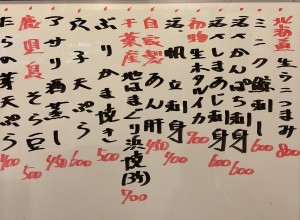 北海道 生うにつまみ 800
ミンク鯨刺し 600
かんぱち刺身 600
刺身 600
初物 生ホタルイカ 700
活帆立刺身 450
自家製 あん肝
千葉産 地はまぐり浜焼(3ヶ) 700
ぶりかま焼き 500
穴子天ぷら 600
アサリ酒蒸し 450
鹿児島 そら豆 500
たらの芽天ぷら 400